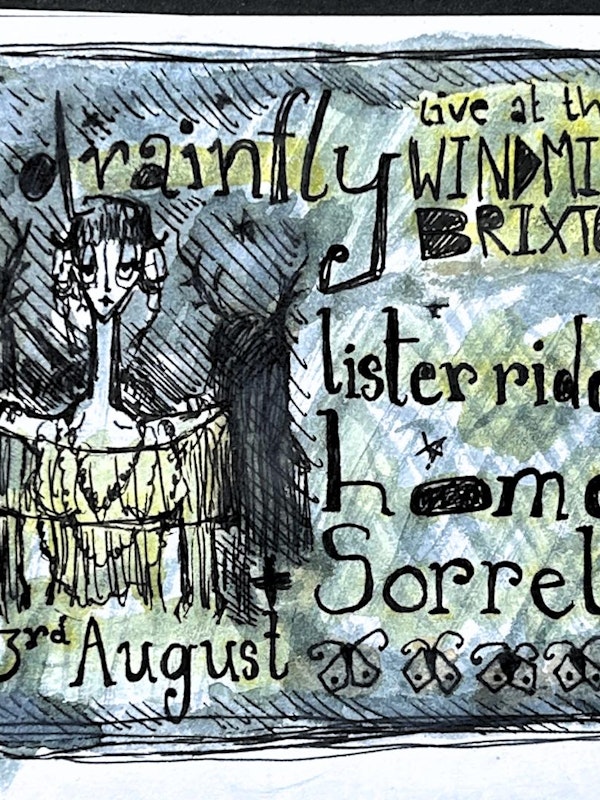 drainfly
Live at th
WINDMI
BRIXTO
lister rid
hom
+ Sorrel
3rd August